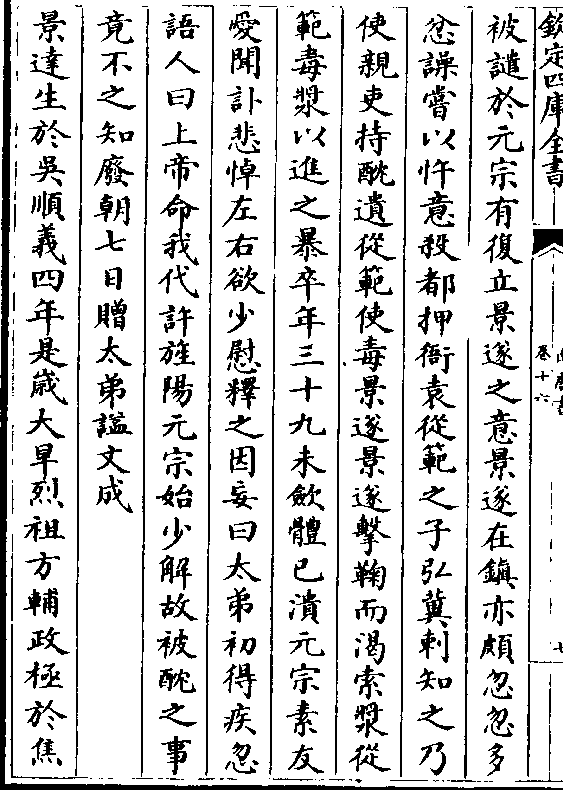 欽定四庫全書
卷十六
七
被譴於元宗有復立景遂之意景遂在鎮亦頗忽忽多
忿躁嘗以忤意殺都押衙袁從範之子弘冀刺知之乃
使親吏持酖遺從範使毒景遂景遂擊鞠而渴索漿從
範毒漿以進之暴卒年三十九未斂體已潰元宗素友
愛聞訃悲悼左右欲少慰釋之因妄曰太弟初得疾忽
語人曰上帝命我代許旌陽元宗始少解故被酖之事
竟不之知廢朝七日贈太弟諡文成
景達生於吳順義四年是歲大旱烈祖方輔政極於焦